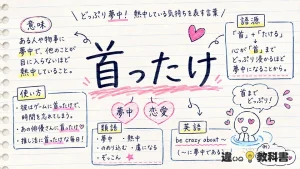 どっぷり夢中！ 熱中している気持ちを表す言葉
意味
ある人や物事に
夢中で、他のことが
目に入らないほど
熱中していること。
首ったけ
語源
「首」+「たける」
↓
心が「首」まで
どっぷり浸かるほど
夢中になることから。
使い方
彼はゲームに首ったけで、
時間を忘れてしまう。
あの俳優さんに首ったけ
推し活に首ったけな毎日！
夢中
恋愛
類語
・夢中 ・熱中
・のめり込む ・虜になる
・ぞっこん
英語
be crazy about ～
(～に夢中である)
首まで
どっぷり！
教科書